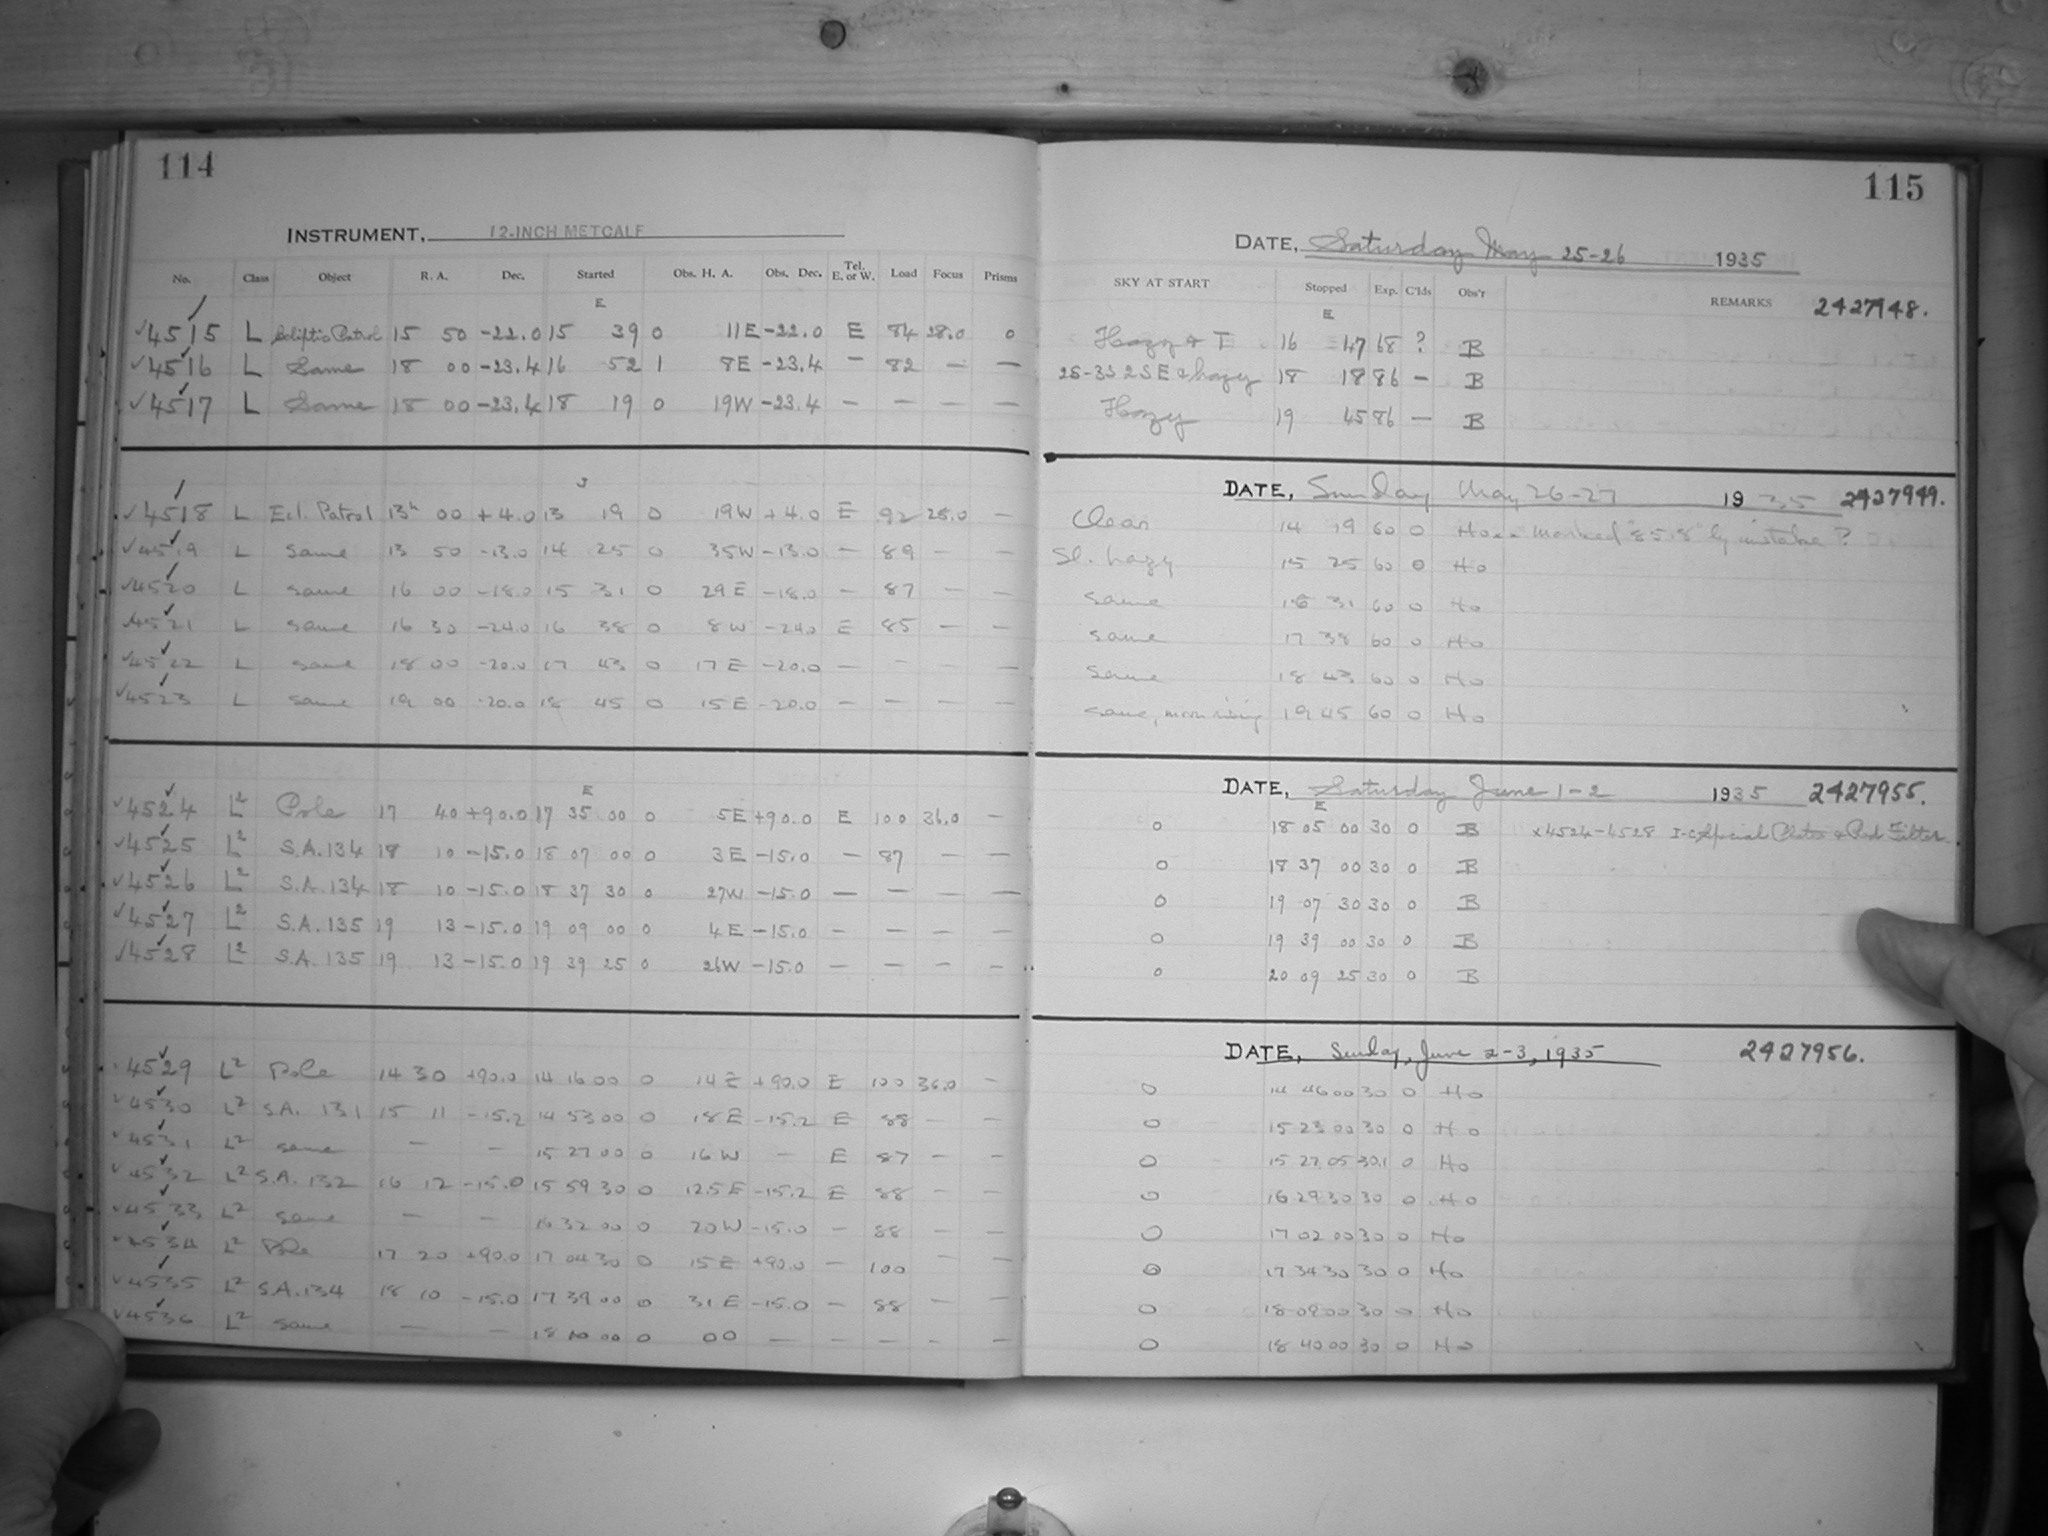 114
INSTRUMENT, 12-INCH METCALF
No. Class Object R. A. Dec. Started Obs. H. A. Obs. Dec. Tel. E. or W. Load Focus Prisms
E
4515 L Ecliptic Patrol 15 50 -22.0 15 39 0 11E -22.0 E 84 28.0 0
4516 L Same 18 00 -23.4 16 52 1 8E -23.4 — 82 — —
4517 L Same 18 00 -23.4 18 19 0 19W -23.4 — — — —
4518 L Ecl. Patrol 13h 00 +4.0 13 19 0 19W +4.0 E 92 28.0 —
4519 L same 13 50 -13.0 14 25 0 35W -13.0 — 89 — —
4520 L same 16 00 -18.0 15 31 0 29E -18.0 — 87 — —
4521 L same 16 30 -24.0 16 38 0 8W -24.0 E 85 — —
4522 L same 18 00 -20.0 17 43 0 17E -20.0 — — — —
4523 L same 19 00 -20.0 18 45 0 15E -20.0 — — — —
E
4524 L2 Pole 17 40 +90.0 17 35 00 0 5E +90.0 E 100 36.0 —
4525 L2 S.A. 134 18 10 -15.0 18 07 00 0 3E -15.0 — 87 — —
4526 L2 S.A. 134 18 10 -15.0 18 37 30 0 27W -15.0 — — — —
4527 L2 S.A. 135 19 13 -15.0 19 09 00 0 4E -15.0 — — — —
4528 L2 S.A. 135 19 13 -15.0 19 39 25 0 26W -15.0 — — — —
4529 L2 Pole 14 30 +90.0 14 16 00 0 14E +90.0 E 100 36.0 —
4530 L2 S.A. 131 15 11 -15.2 14 53 00 0 18E -15.2 E 88 — —
4531 L2 same — — 15 27 00 0 16W — E 87 — —
4532 L2 S.A. 132 16 12 -15.0 15 59 30 0 12.5E -15.2 E 88 — —
4533 L2 same — — 16 32 00 0 20W -15.0 — 88 — —
4534 L2 Pole 17 20 +90.0 17 04 30 0 15E +90.0 — 100 — —
4535 L2 S.A. 134 18 10 -15.0 17 39 00 0 31E -15.0 — 88 — —
4536 L2 same — — 18 10 00 0 00 — — — — —
115
DATE, Saturday May 25-26 1935
SKY AT START Stopped Exp. C'lds Obs'r REMARKS 2427948.
E
Hazy & T 16 47 68 ? B
25-35 2 S E & hazy 18 18 86 — B
Hazy 19 45 86 — B
DATE, Sunday May 26-27 1935 2427949.
Clear 14 19 60 0 Ho marked "8518" by mistake?
Sl. hazy 15 25 60 0 Ho
same 16 31 60 0 Ho
same 17 38 60 0 Ho
same 18 43 60 0 Ho
same, moon rising 19 45 60 0 Ho
DATE, Saturday June 1-2 1935 2427955.
E
0 18 05 00 30 0 B x4524-4528 I-C Special Plates & Red Filter
0 18 37 00 30 0 B
0 19 07 30 30 0 B
0 19 39 00 30 0 B
0 20 09 25 30 0 B
DATE, Sunday, June 2-3, 1935 2427956.
0 14 46 00 30 0 Ho
0 15 23 00 30 0 Ho
0 15 27 05 30.1 0 Ho
0 16 29 30 30 0 Ho
0 17 02 00 30 0 Ho
0 17 34 30 30 0 Ho
0 18 09 00 30 0 Ho
0 18 40 00 30 0 Ho